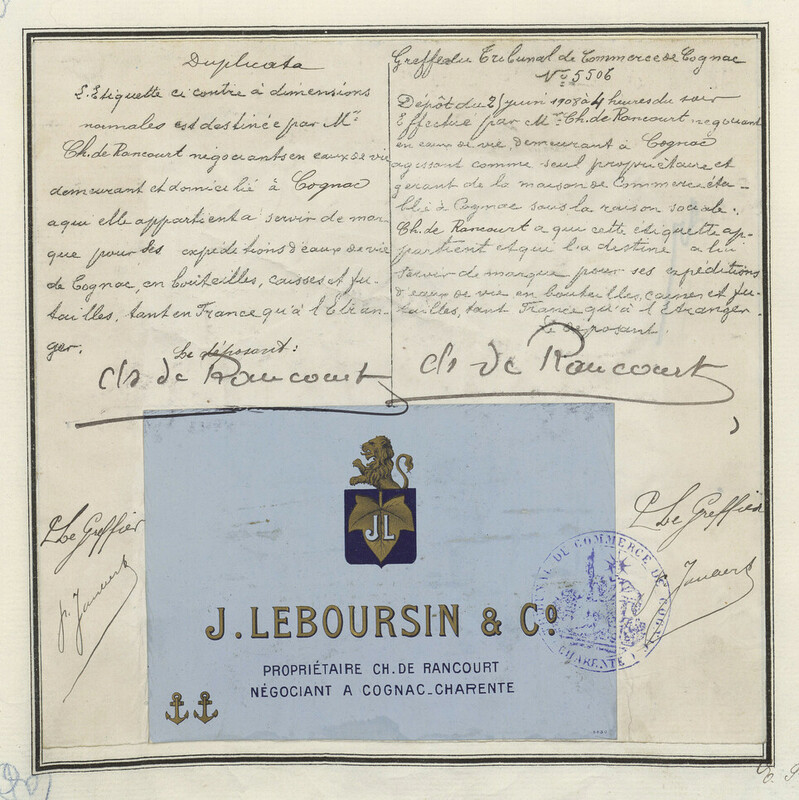 Duplicata
L'Etiquette ci contre à dimensions
normales est destinée par Mr
Ch. de Rancourt négociants en eaux de vie
demeurant et domicilié à Cognac
a qui elle appartient a servir de mar
que pour ses expeditions d'eaux de vie
de Cognac, en bouteilles, caisses et fu-
tailles, tant en France qu'à l'Etran-
ger.
Le déposant:
Ch de Rancourt
Greffe du Tribunal de Commerce de Cognac
No 5506
Dépôt du 25 juin 1908 à 4 heures du soir
Effectué par Mr Ch. de Rancourt négociant
en eaux de vie, demeurant à Cognac
agissant comme seul propriétaire et
gérant de la maison de Commerce éta-
blié à Cognac sous la raison sociale:
Ch. de Rancourt a qui cette étiquette ap-
partient et qui l'a destine a lui
servir de marque pour ses expéditions
d'eaux de vie en bouteilles, caisses et fu-
tailles, tant France qu'à l'Etranger.
Le déposant.
Ch de Rancourt
P Le Greffier
P Le Greffier
JL
TRIBUNAL DE COMMERCE DE COGNAC
CHARENTE
J. LEBOURSIN & Co.
PROPRIÉTAIRE CH. DE RANCOURT
NÉGOCIANT A COGNAC_CHARENTE